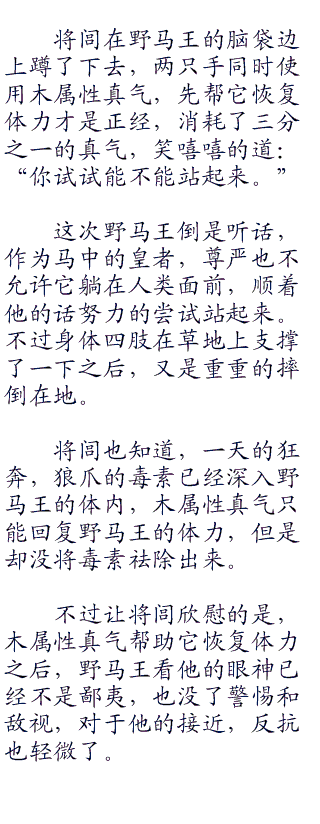 将闾在野马王的脑袋边
上蹲了下去，两只手同时使
用木属性真气，先帮它恢复
体力才是正经，消耗了三分
之一的真气，笑嘻嘻的道：
“你试试能不能站起来。”
这次野马王倒是听话，
作为马中的皇者，尊严也不
允许它躺在人类面前，顺着
他的话努力的尝试站起来。
不过身体四肢在草地上支撑
了一下之后，又是重重的摔
倒在地。
将闾也知道，一天的狂
奔，狼爪的毒素已经深入野
马王的体内，木属性真气只
能回复野马王的体力，但是
却没将毒素祛除出来。
不过让将闾欣慰的是，
木属性真气帮助它恢复体力
之后，野马王看他的眼神已
经不是鄙夷，也没了警惕和
敌视，对于他的接近，反抗
也轻微了。